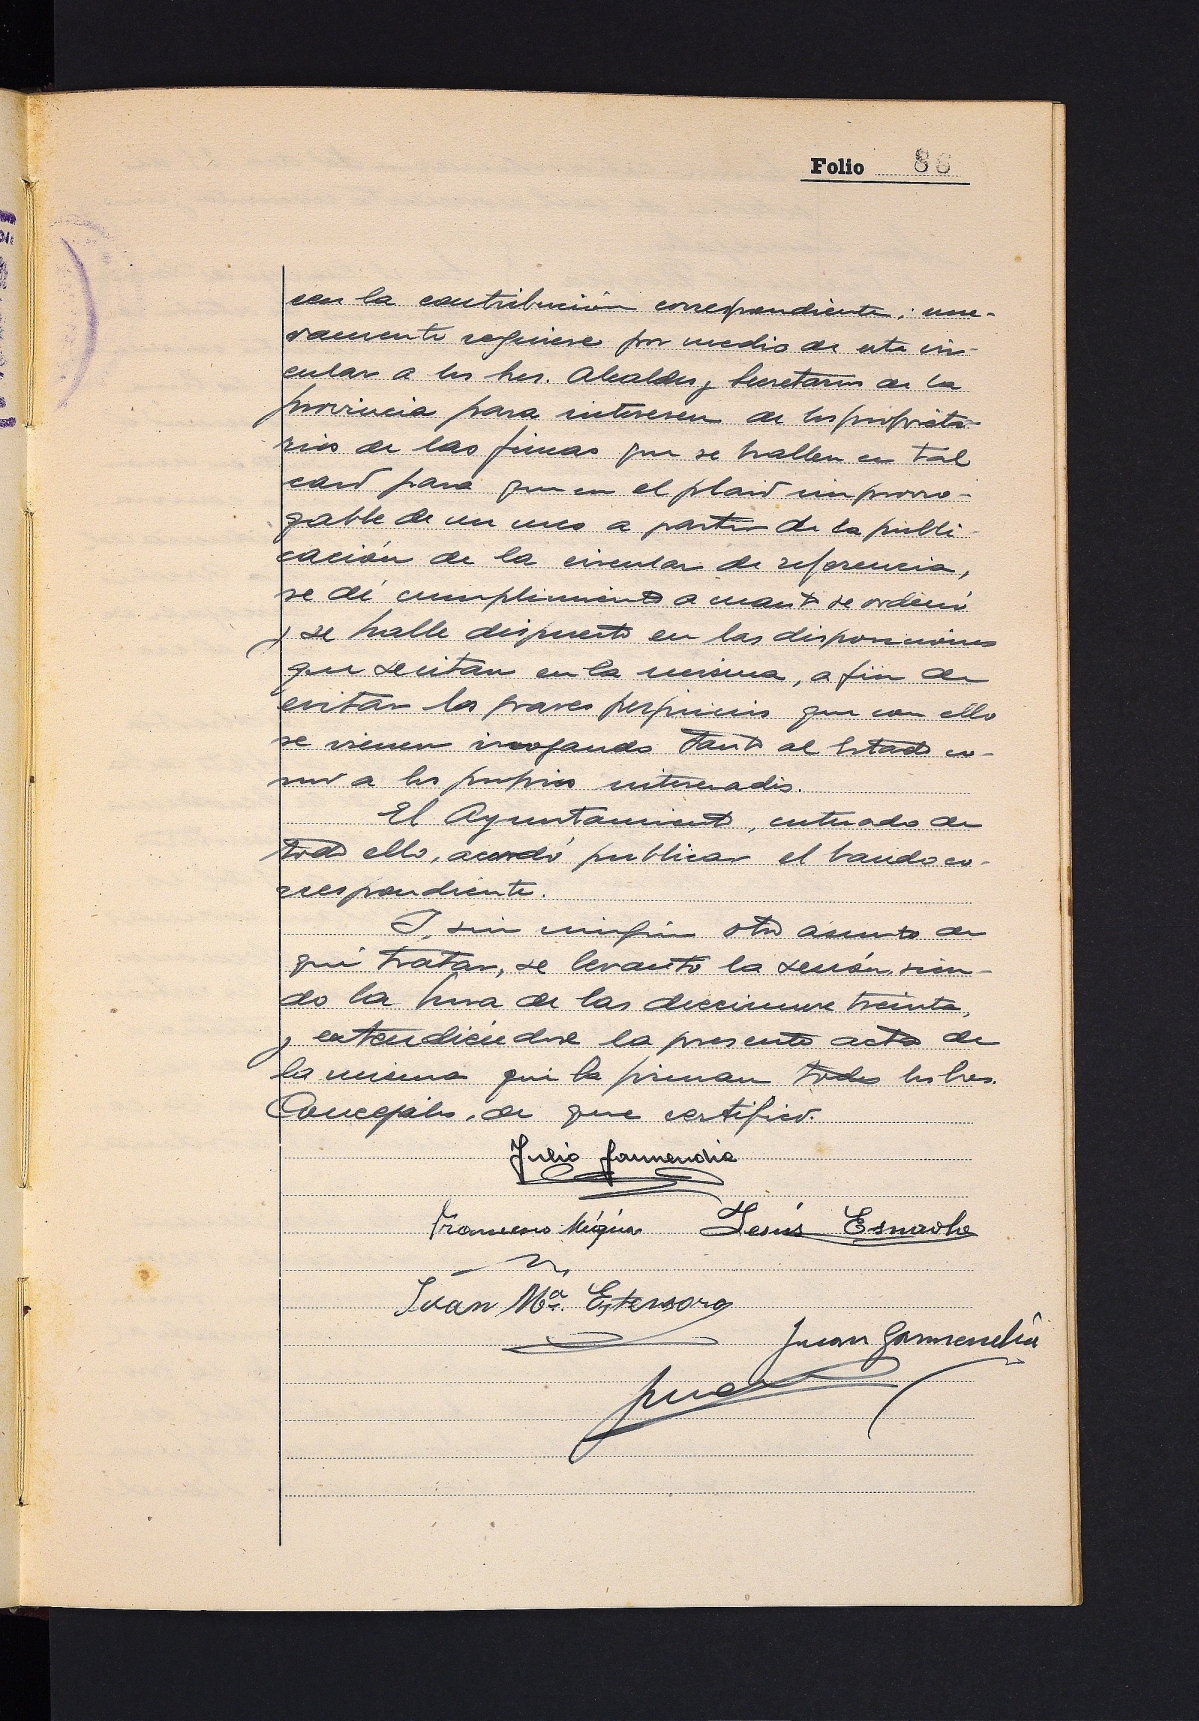 Folio 88
con la contribución correspondiente; nue-
vamente requiere por medio de esta cir-
cular a los Sres. Alcaldes y Secretarios de la
provincia para interesen de los propieta-
rios de las fincas que se hallen en tal
caso para que en el plazo improrro-
gable de un mes a partir de la publi-
cación de la circular de referencia,
se dé cumplimiento a cuanto se ordenó
y se halle dispuesto en las disposiciones
que se citan en la misma, a fin de
evitar los graves perjuicios que con ello
se vienen irrogando tanto al Estado co-
mo a los propios interesados.
El Ayuntamiento, enterado de
todo ello, acordó publicar el bando co-
rrespondiente.
Y, sin ningún otro asunto de
que tratar, se levantó la sesión, sien-
do la hora de las diecinueve treinta,
y extendiéndose la presente acta de
la misma que la firman todos los Sres.
Concejales, de que certifico.
Julio Garmendia
Francisco Múgica Jesús Esnaola
Juan Mª. Estensoro
Juan Garmendia